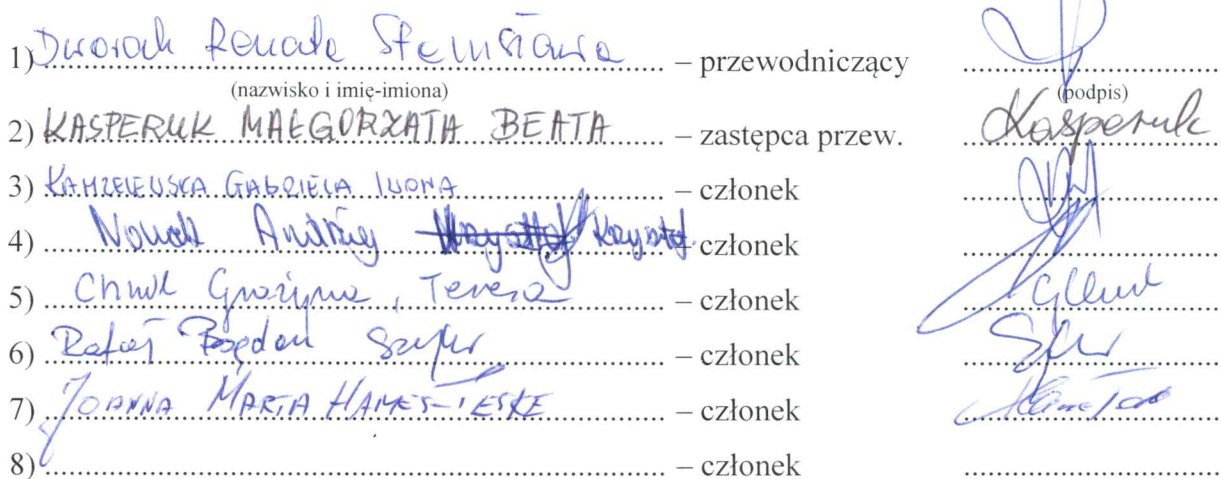 1) Dworak Renata Stanisława – przewodniczący
(nazwisko i imię-imiona) (podpis)
2) KASPERUK MAŁGORZATA BEATA – zastępca przew. Kasperuk
3) GABRIELA IWONA – członek
4) Nowak Andrzej – członek
5) Grażyna, Teresa – członek
6) Rafał Bogdan – członek
7) JOANNA MARTA HAMES-TESKE – członek
8) – członek